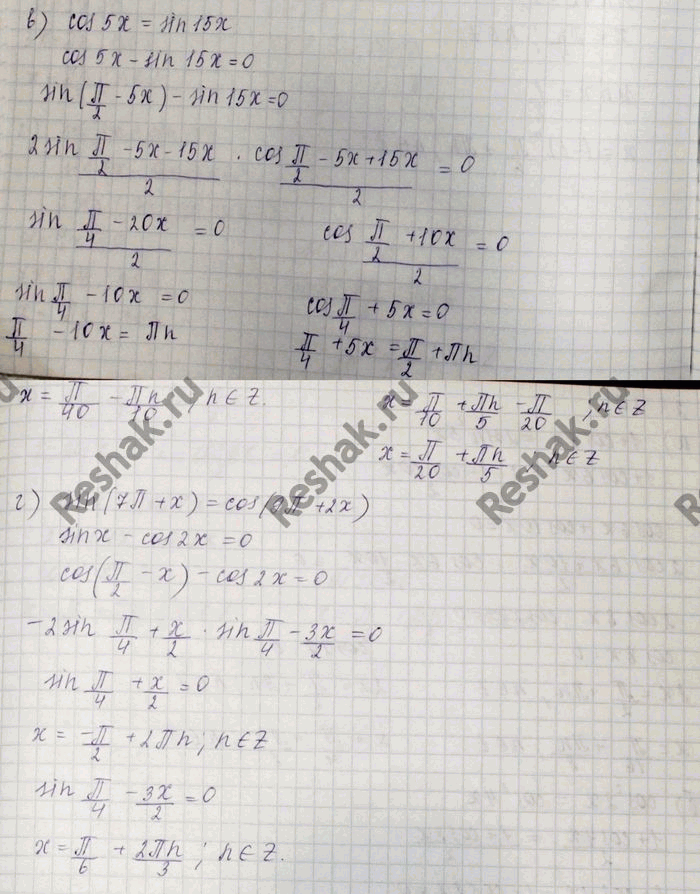 в) cos 5x = sin 15x
cos 5x - sin 15x = 0
sin(π/2 - 5x) - sin 15x = 0
2 sin (π/2 - 5x - 15x)/2 · cos (π/2 - 5x + 15x)/2 = 0
sin (π/4 - 20x)/2 = 0 cos (π/2 + 10x)/2 = 0
sin π/4 - 10x = 0 cos π/4 + 5x = 0
π/4 - 10x = πn π/4 + 5x = π/2 + πn
x = π/40 - πn/10 ; n ∈ Z. x = π/10 + πn/5 - π/20 ; n ∈ Z
x = π/20 + πn/5 , n ∈ Z
г) sin(7π + x) = cos(9π + 2x)
sin x - cos 2x = 0
cos(π/2 - x) - cos 2x = 0
-2 sin π/4 + x/2 · sin π/4 - 3x/2 = 0
sin π/4 + x/2 = 0
x = -π/2 + 2πn ; n ∈ Z
sin π/4 - 3x/2 = 0
x = π/6 + 2πn/3 ; n ∈ Z.
Reshak.ru
Reshak.ru
Reshak.ru